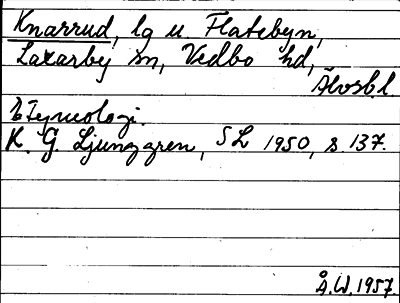 Knarrud, lg u. Flatebyn,
Laxarby sn, Vedbo hd,
Älvsb.l.
Etymologi.
K. G. Ljunggren, SL 1950, s. 137.
Å.W. 1957